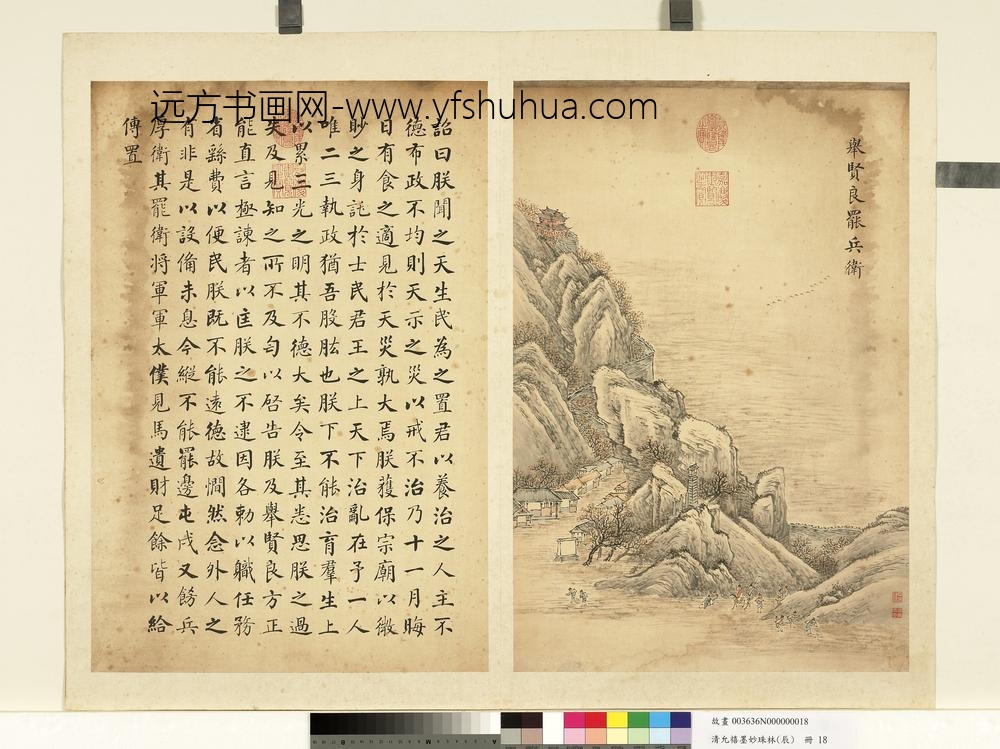 舉賢良罷兵衛
詔曰朕聞之天生民為之置君以養治之人主不
德布政不均則天示之災以戒不治乃十一月晦
日有食之適見於天災孰大焉朕獲保宗廟以微
眇之身託於士民君王之上天下治亂在予一人
唯二三執政猶吾股肱也朕下不能治育羣生上
以累三光之明其不德大矣令至其悉思朕之過
失及見知之所不及匄以啓告朕及舉賢良方正
能直言極諫者以匡朕之不逮因各勅以職任務
省繇費以便民朕既不能遠德故憪然念外人之
有非是以設俻未息今縱不能罷邊屯戍又飭兵
厚衛其罷衛將軍軍太僕見馬遺財足餘皆以給
傳置
远方书画网-www.yfshuhua.com
故畫 003636N000000018
清允禧墨妙珠林(辰) 冊 18